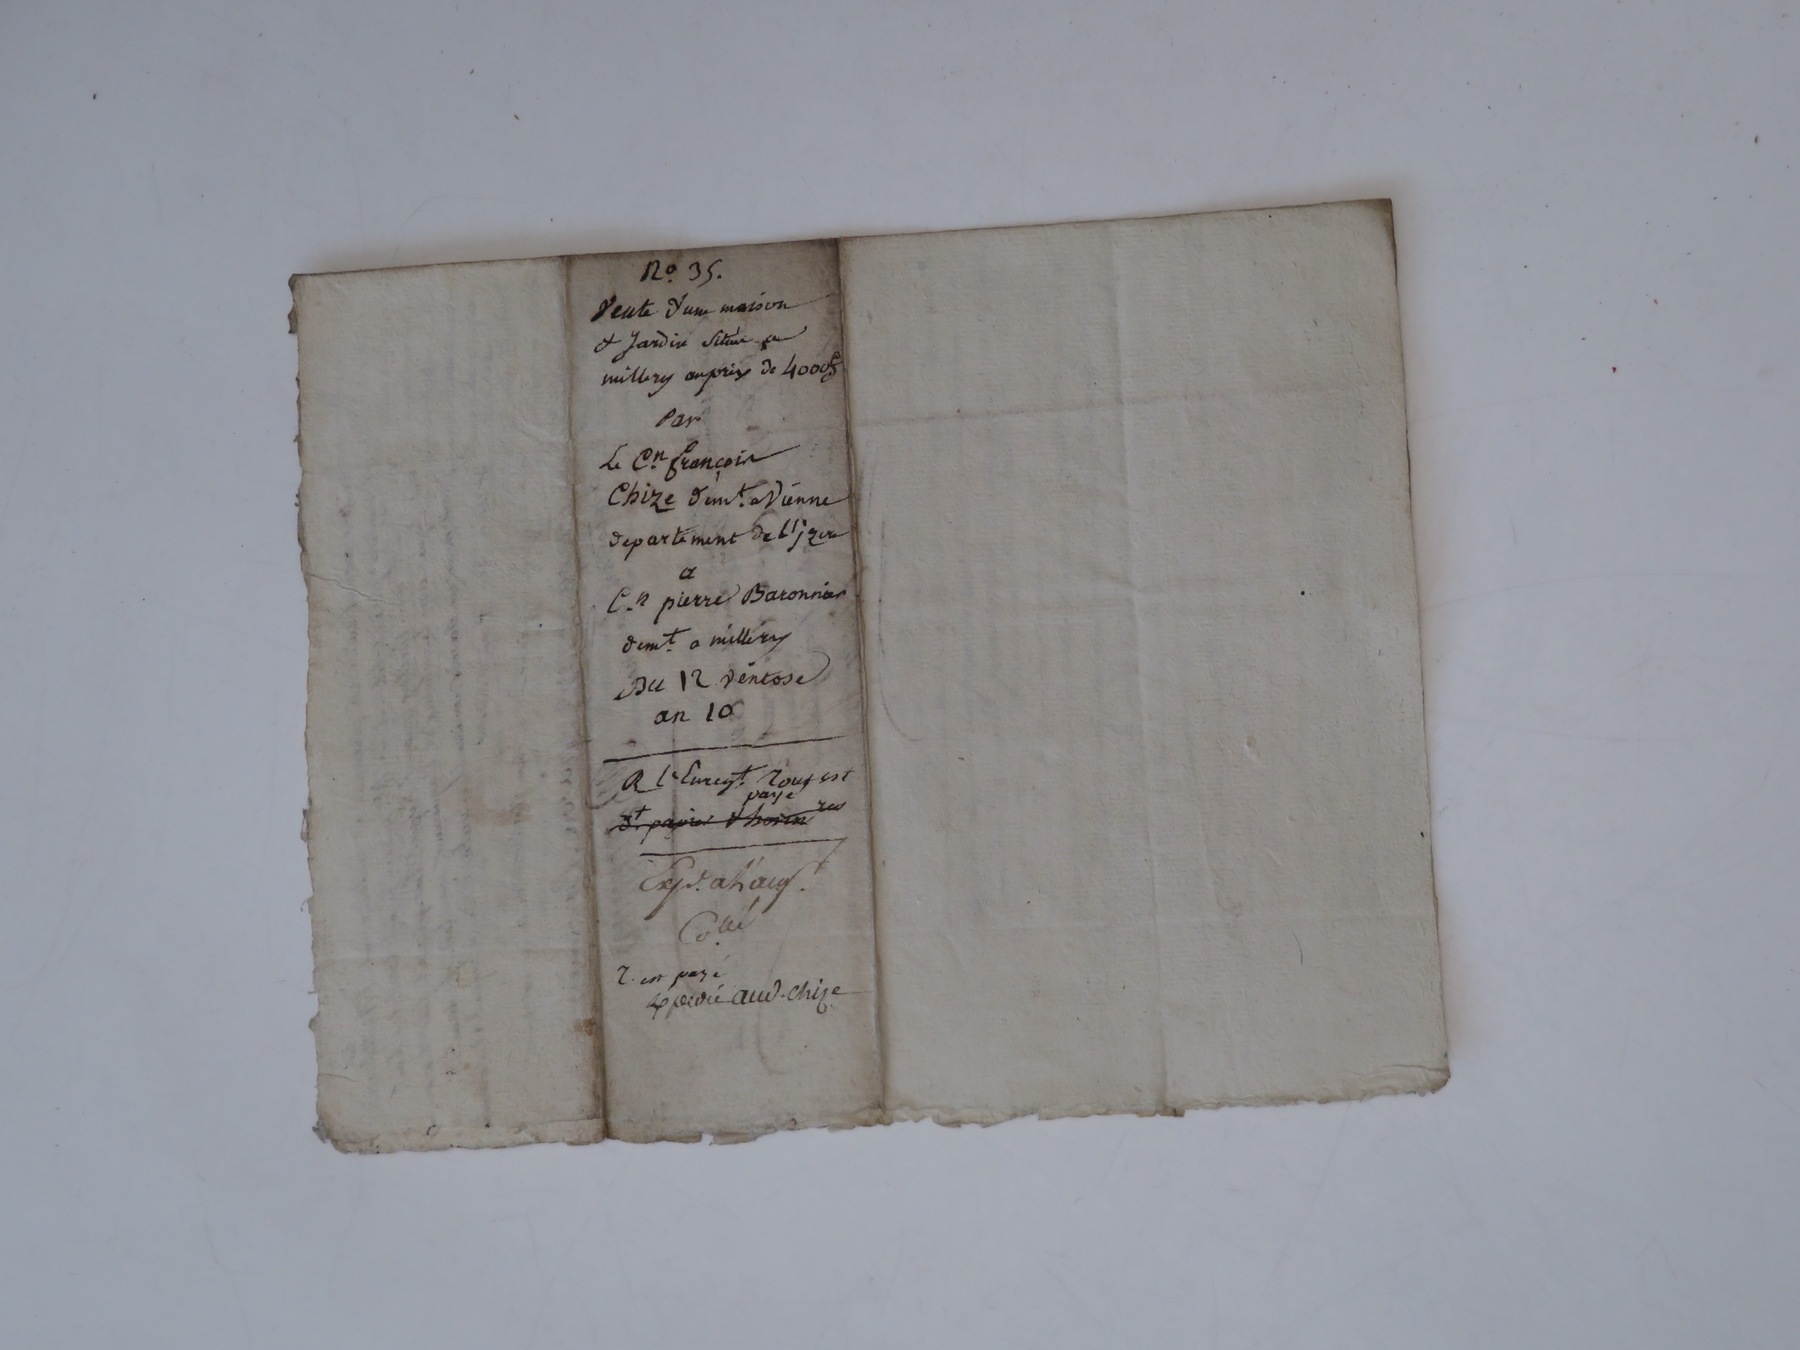 No. 35.
Vente d'une maison
& Jardin située a
millery au prix de 4000f
Par
Le Cn. françois
Chize demt. a Vienne
departement de l'jzere
a
Cn. pierre Baronnier
demt. a millery
Du 12 ventose
an 10
R l'Enregt. Tout est
payé
dt. papier & honorres
Expd. a l'acqt.
Collé
T. est payé
Expedié aud. chize